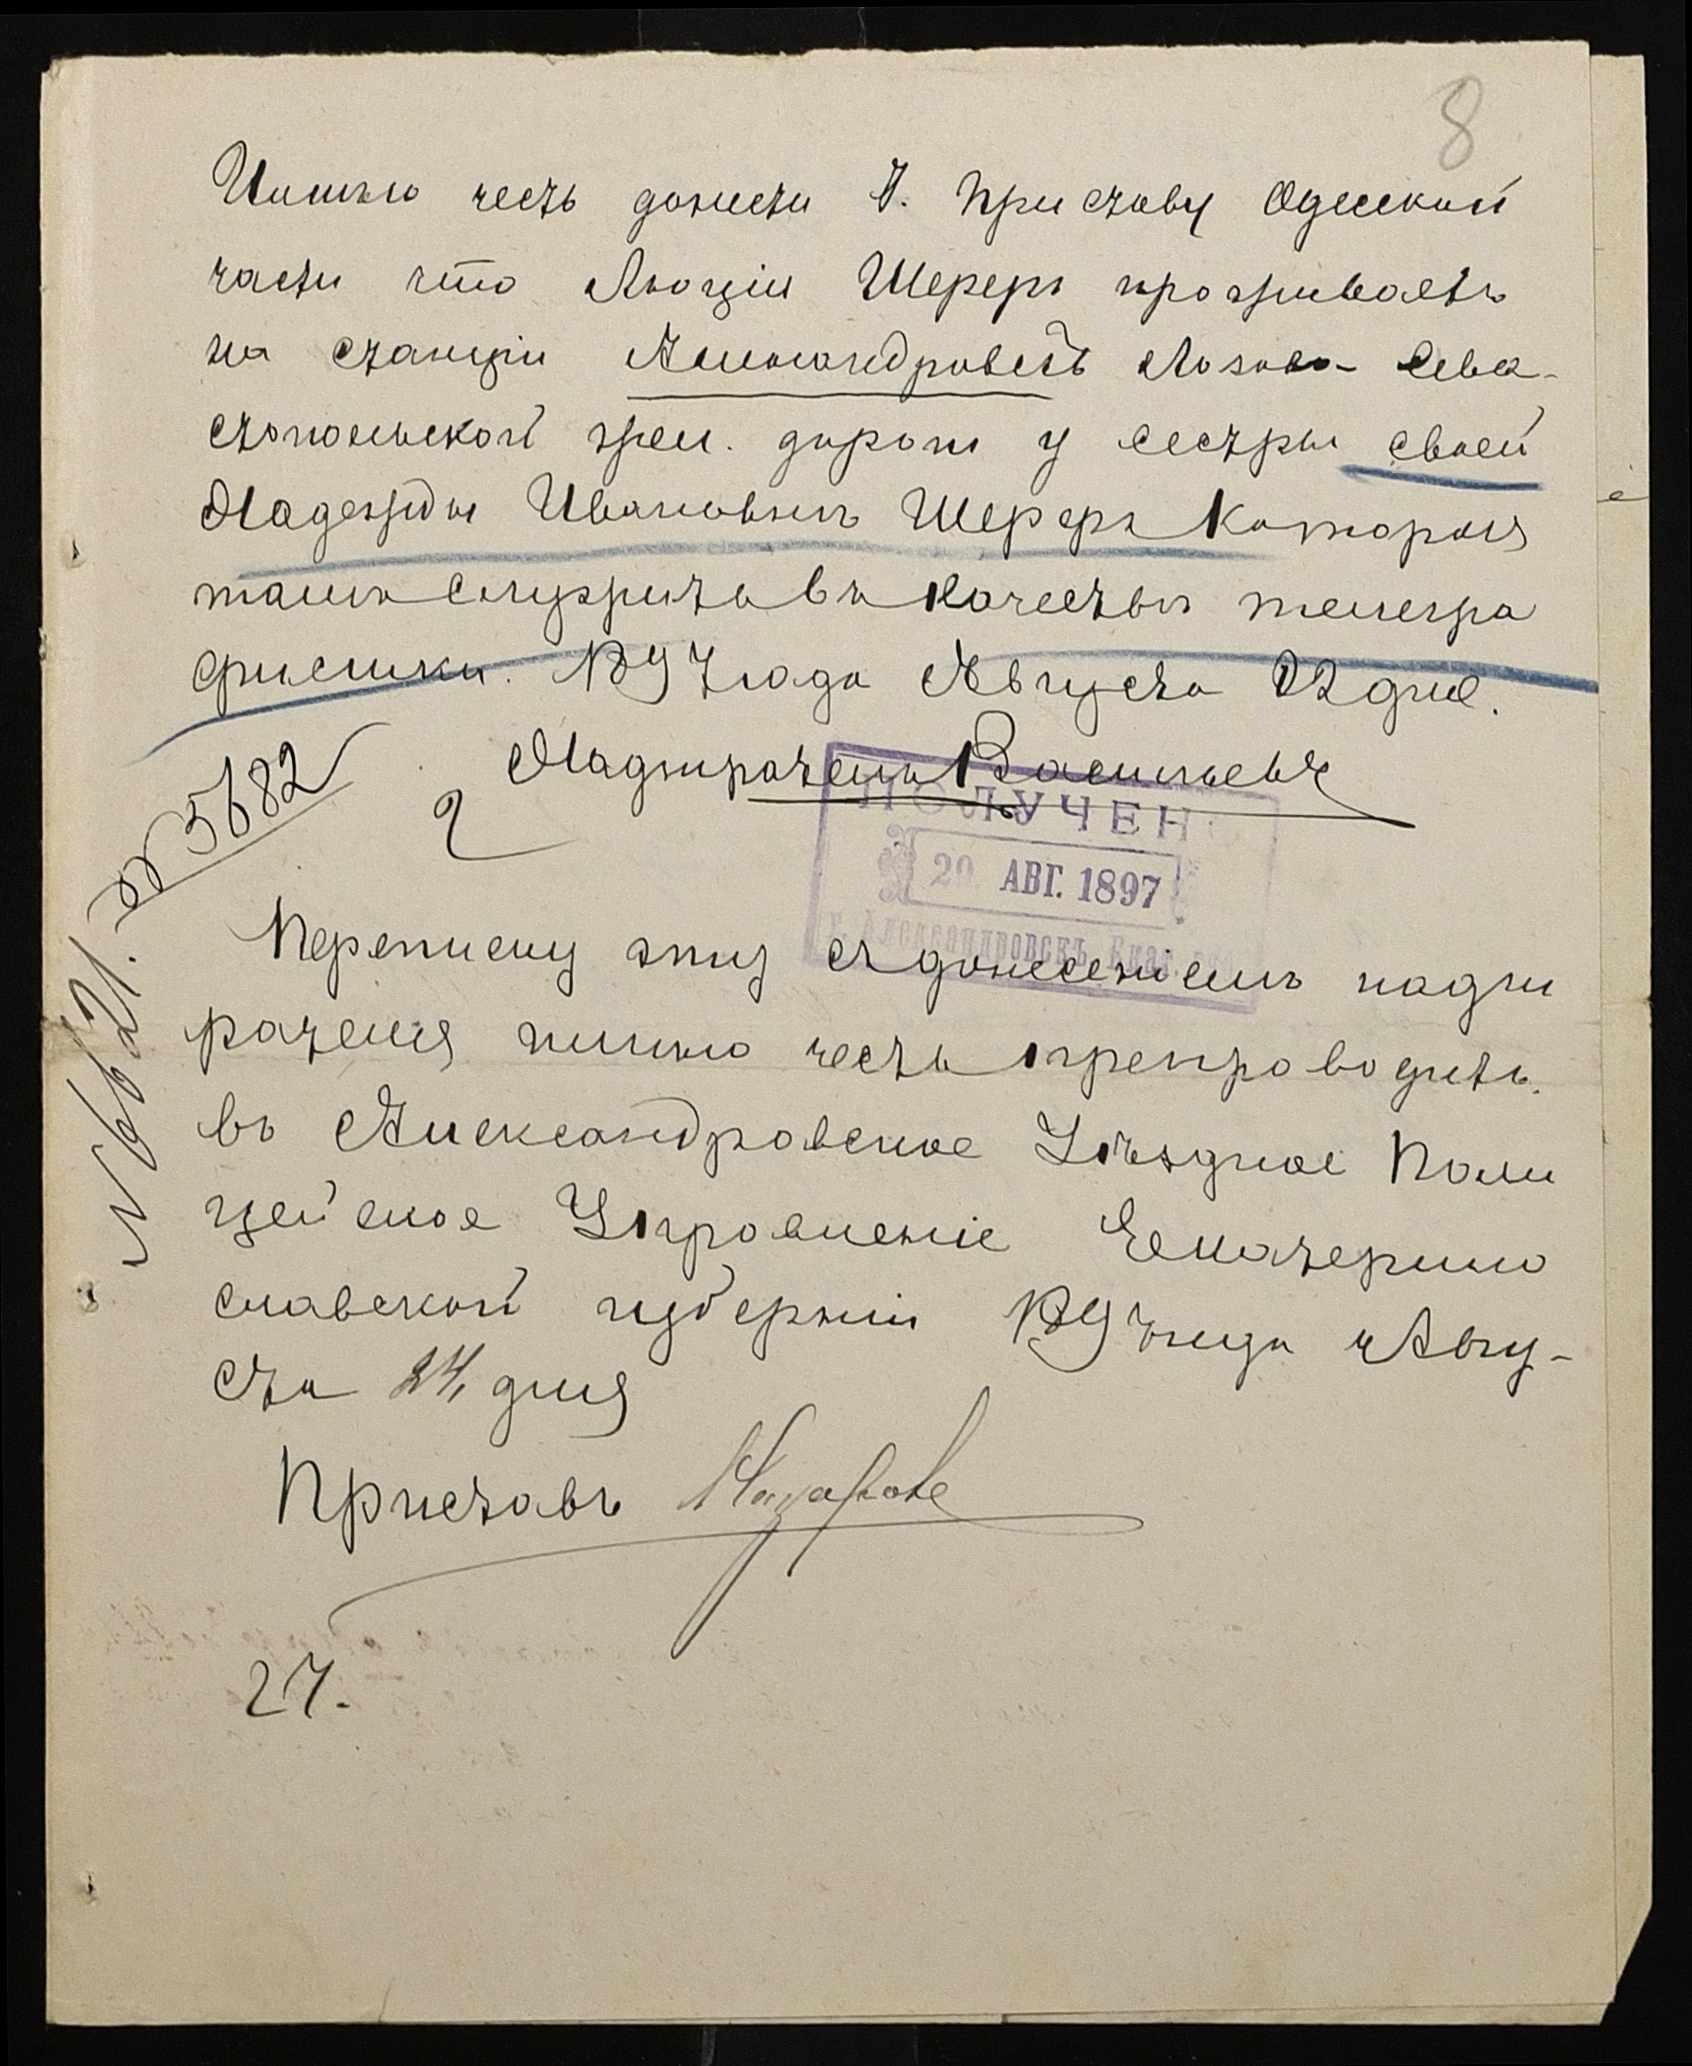 8
Имѣю честь донести Г. Приставу Одесской
части что Люція Шереръ проживаетъ
на станціи Александровскъ Лозово-Сева-
стопольской жел. дороги у сестры своей
Надежды Ивановны Шереръ которая
тамъ служитъ въ качествѣ телегра
фистки. 1897 года Августа 22 дня.
Надзиратель Васильевъ
№ 5682
ПОЛУЧЕН
29 АВГ. 1897
г. Александровскъ Екат.
№ 6621.
Переписку эту съ донесеніемъ надзи
рателя имѣю честь препроводить
въ Александровское Уѣздное Поли
цейское Управленіе Екатерино
славской губерніи 1897 года Авгу-
ста 24 дня
Приставъ
27.